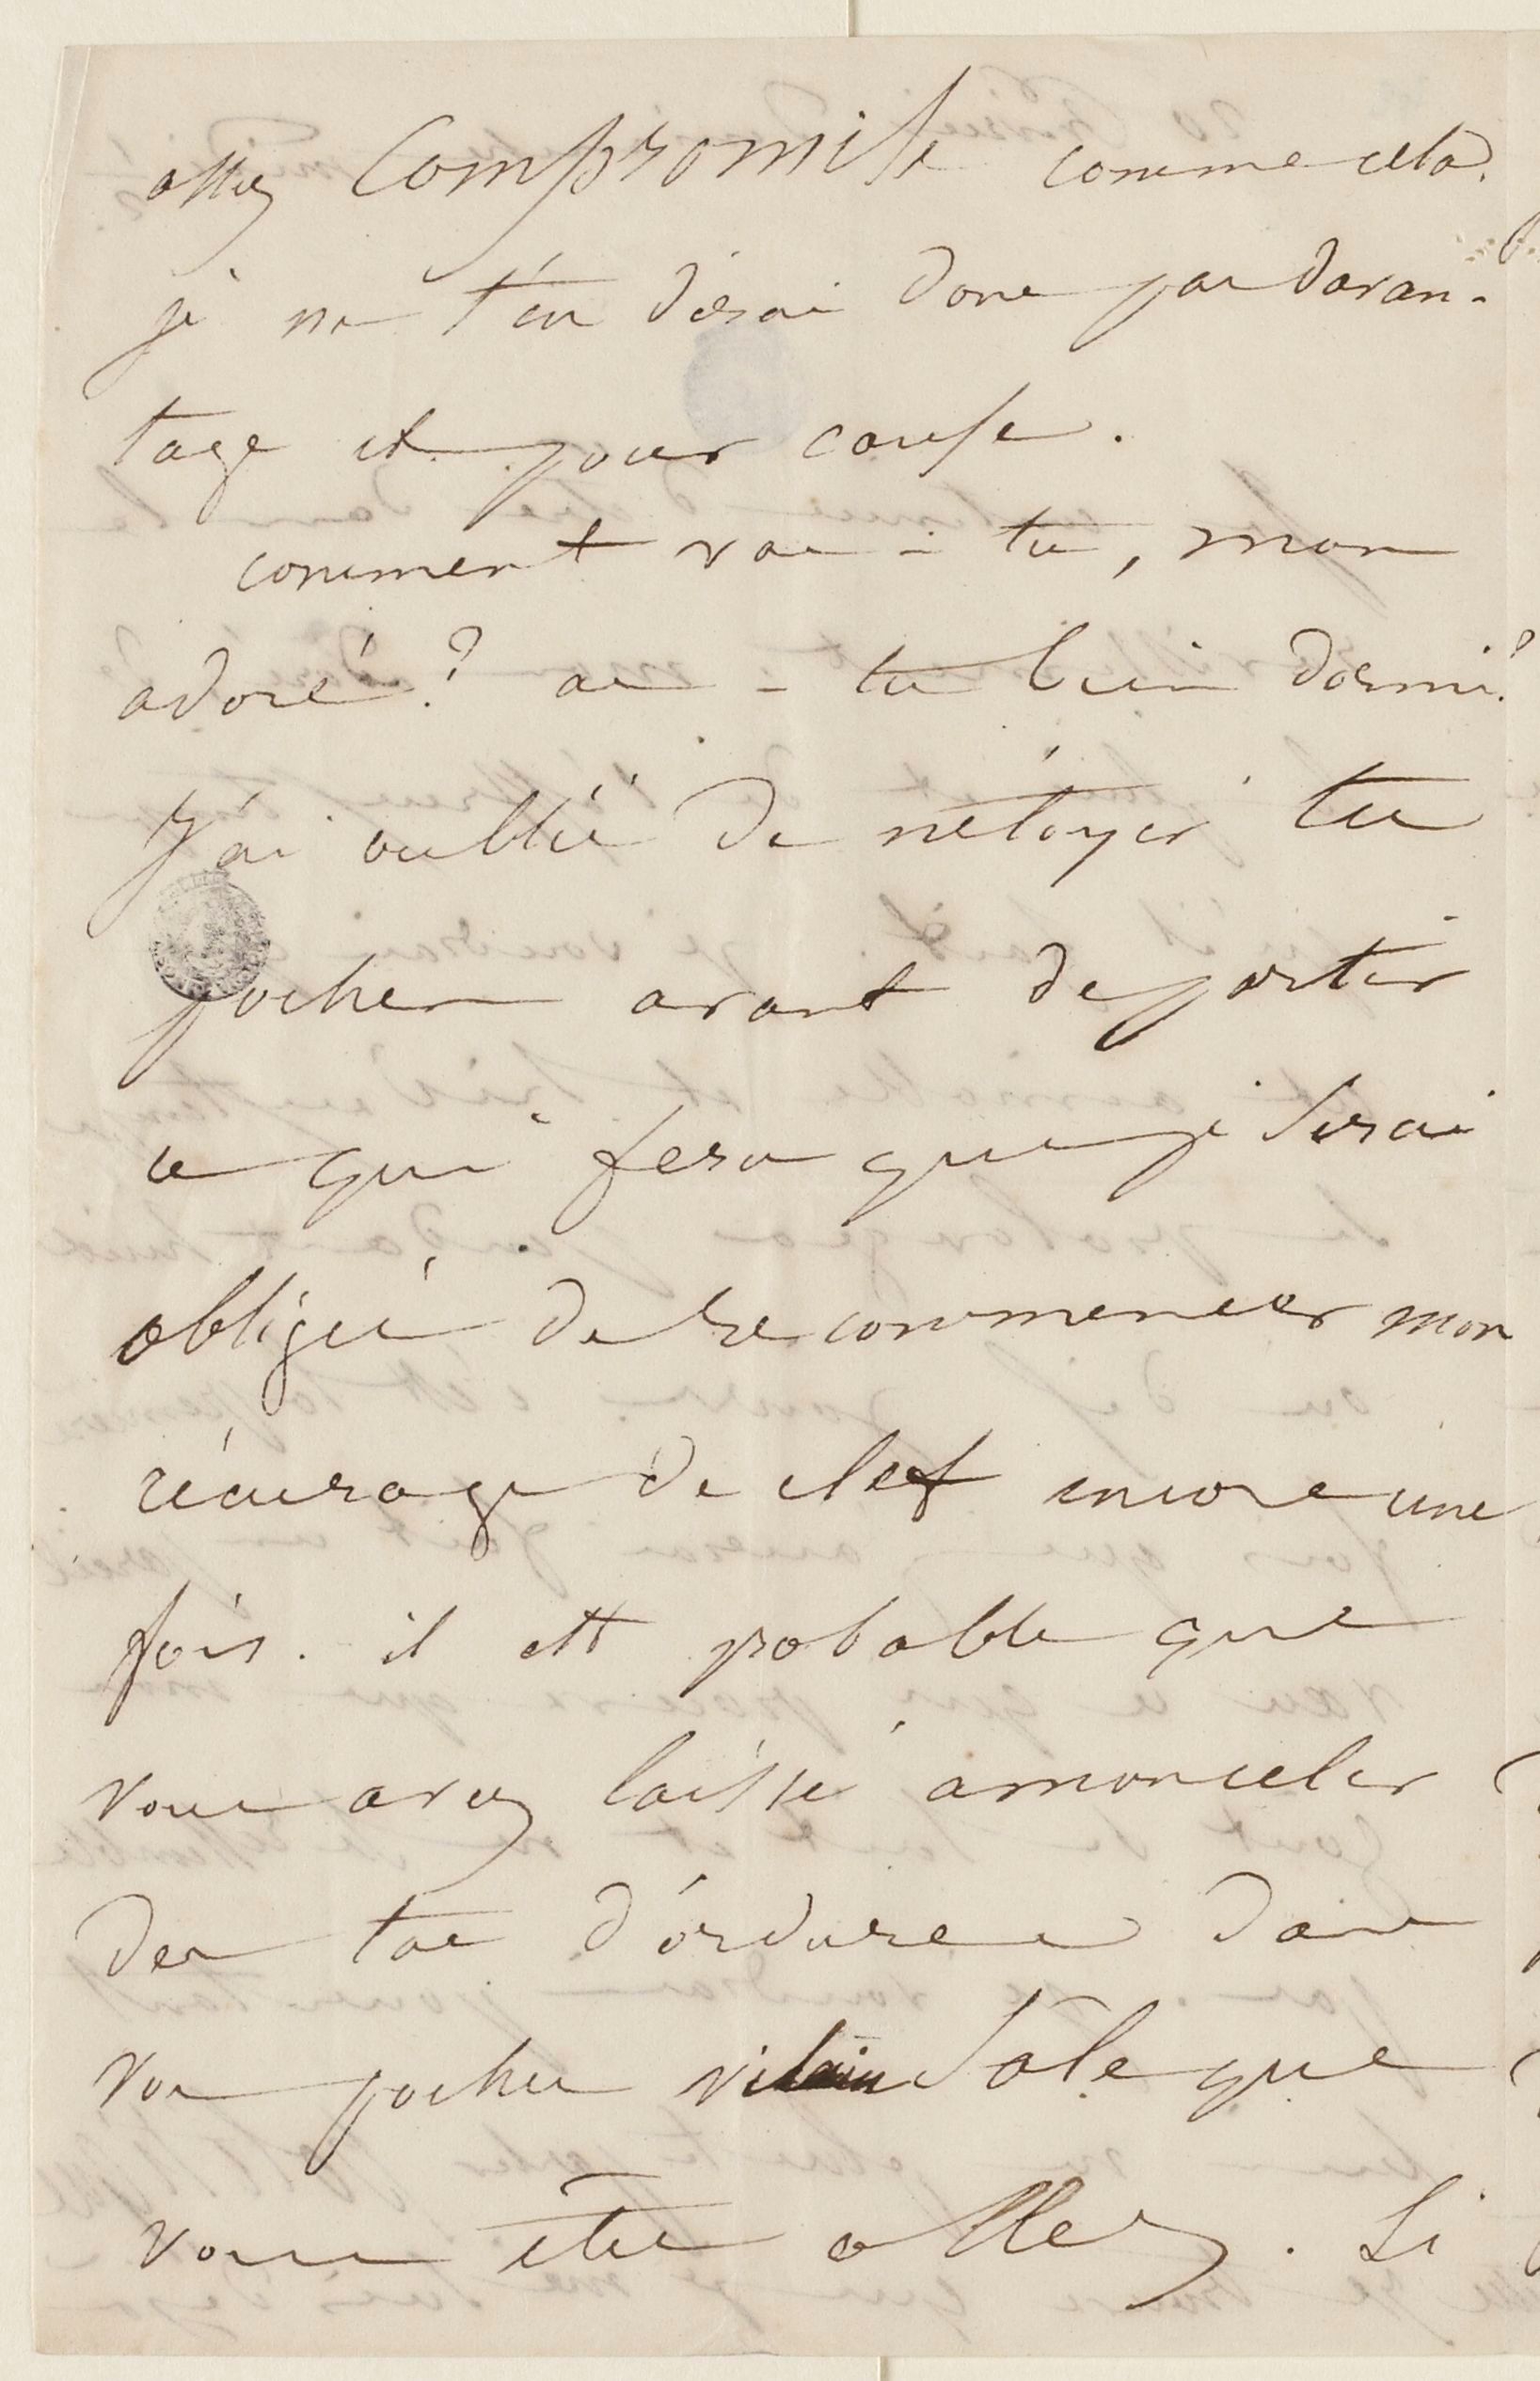 assez compromise comme cela.
je ne t'en dirai donc pas davan-
tage et pour cause.
comment vas-tu, mon
adoré? as-tu bien dormi?
J'ai oublié de nétoyer tes
poches avant de partir
ce qui fera que je serai
obligée de recommencer mon
récurage de clef encore une
fois. il est probable que
vous avez laissé amonceler
des tas d'ordures dans
vos poches vilain sale que
vous êtes allez. Si